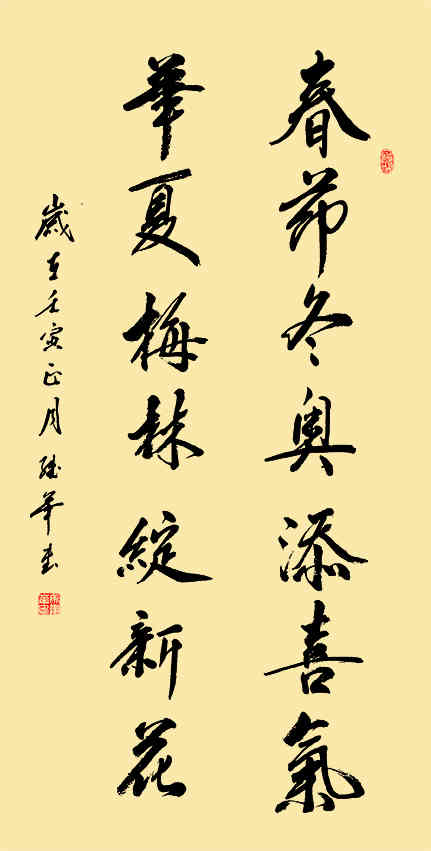 春節冬奥添喜氣
華夏梅林綻新花
歲在壬寅正月 華書